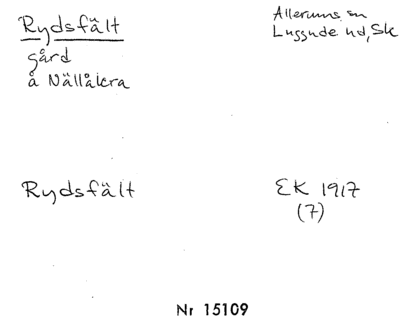 Rydsfält
gård
å Nällåkra
Allerums sn
Luggude hd, Sk
Rydsfält
EK 1917
(7)
Nr 15109